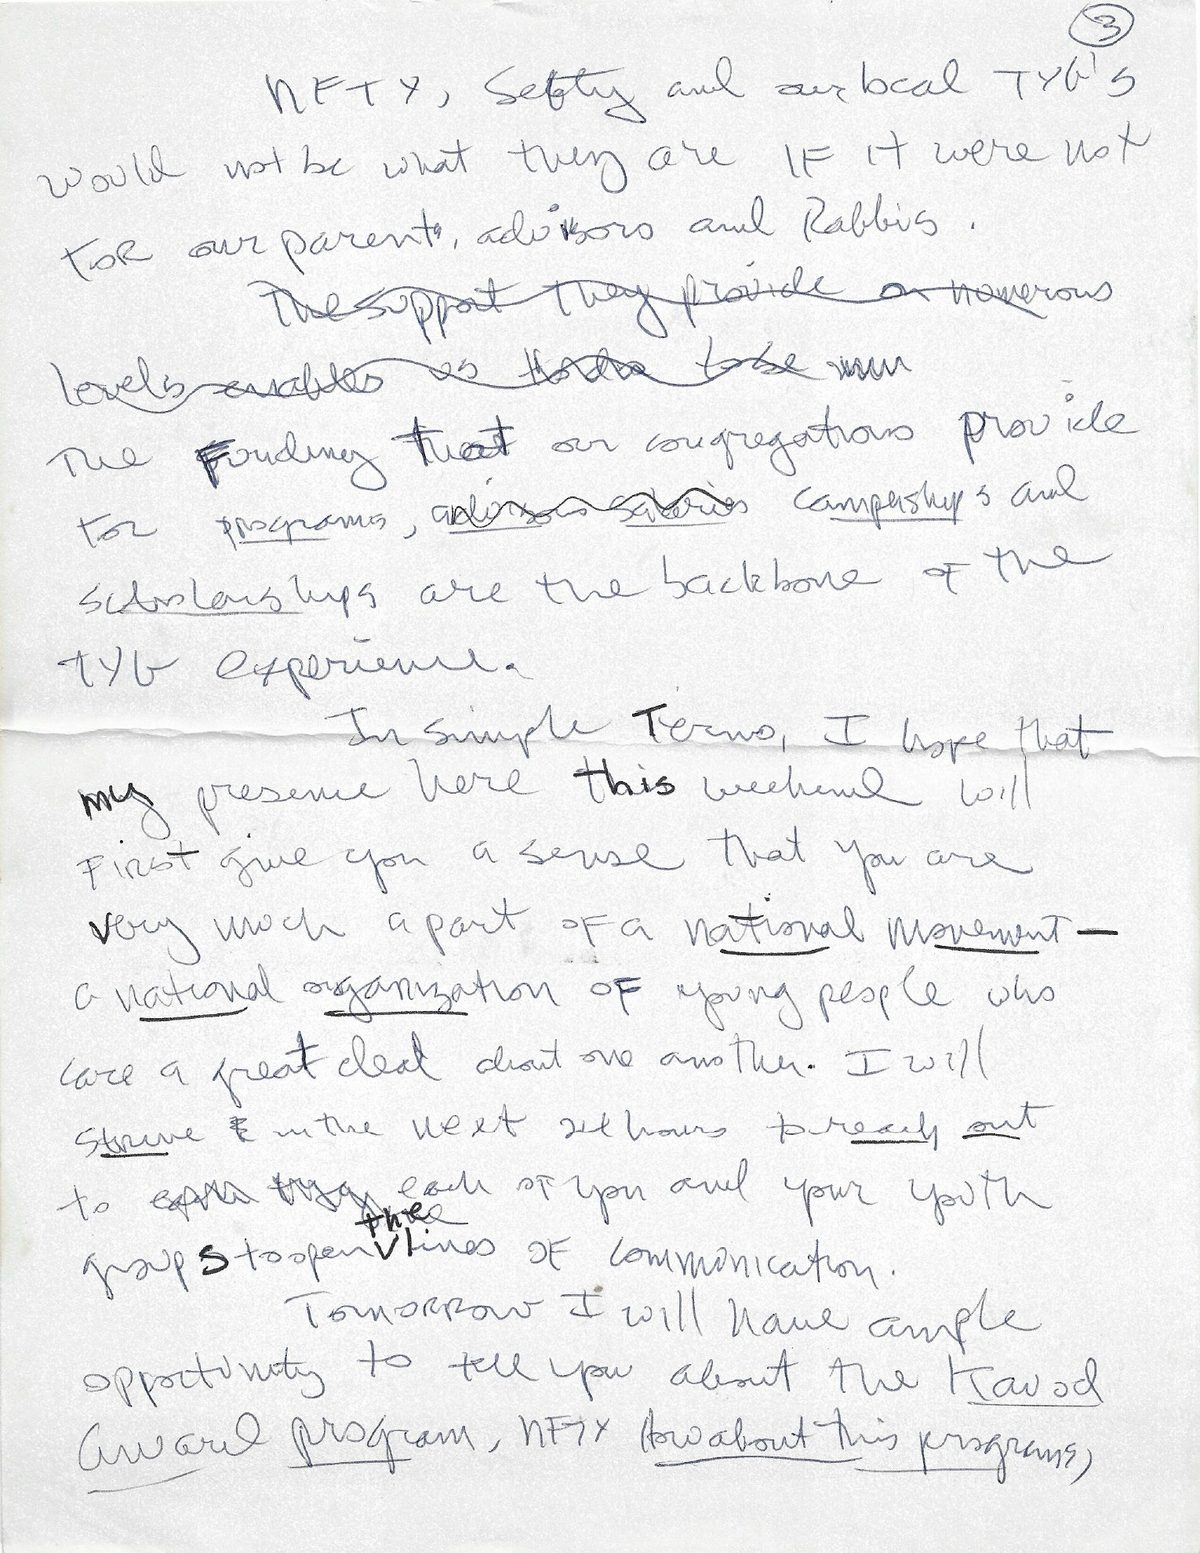 3
NFTY, Sefty and our local TYG's
would not be what they are IF it were not
for our parents, advisors and Rabbis.
The support they provide on numerous
levels enables us
The Funding that our congregations provide
for programs, advisors salaries camperships and
scholarships are the backbone of the
TYG experience.
In simple Terms, I hope that
my presence here this weekend will
First give you a sense that you are
very much a part of a national movement—
a national organization of young people who
care a great deal about one another. I will
strive in the next 24 hours to reach out
to each of you and your youth
groups to open the lines of communication.
Tomorrow I will have ample
opportunity to tell you about the Kavod
Award program, NFTY How about this programs,